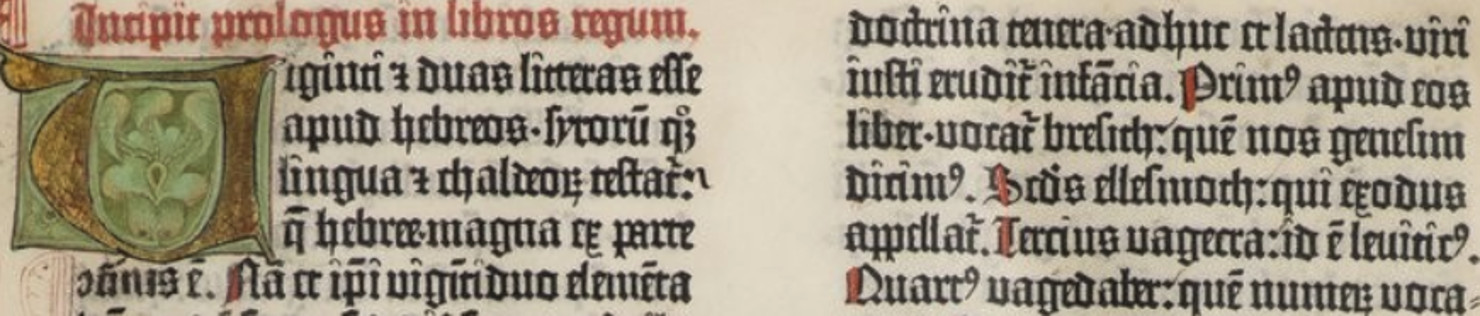 Incipit prologus in libros regum.
Viginti ⁊ duas litteras esse
apud hebreos·syrorū qꝫ
lingua ⁊ chaldeoꝝ testat᷑:
q̄ hebree·magna ex parte
ꝯfinis ē. Nā et ip̄i viginti duo elemēta
doctrina tenera·adhuc et lactens·viri
iusti erudit᷑ infācia. Primꝰ apud eos
liber·vocat᷑ bresith: quē nos genesim
dicimꝰ. Scd̄s ellesmoth: qui exodus
appellat᷑. Tercius vagecra: id ē leviticꝰ.
Quartꝰ vagedaber: quē numeꝝ voca⸗